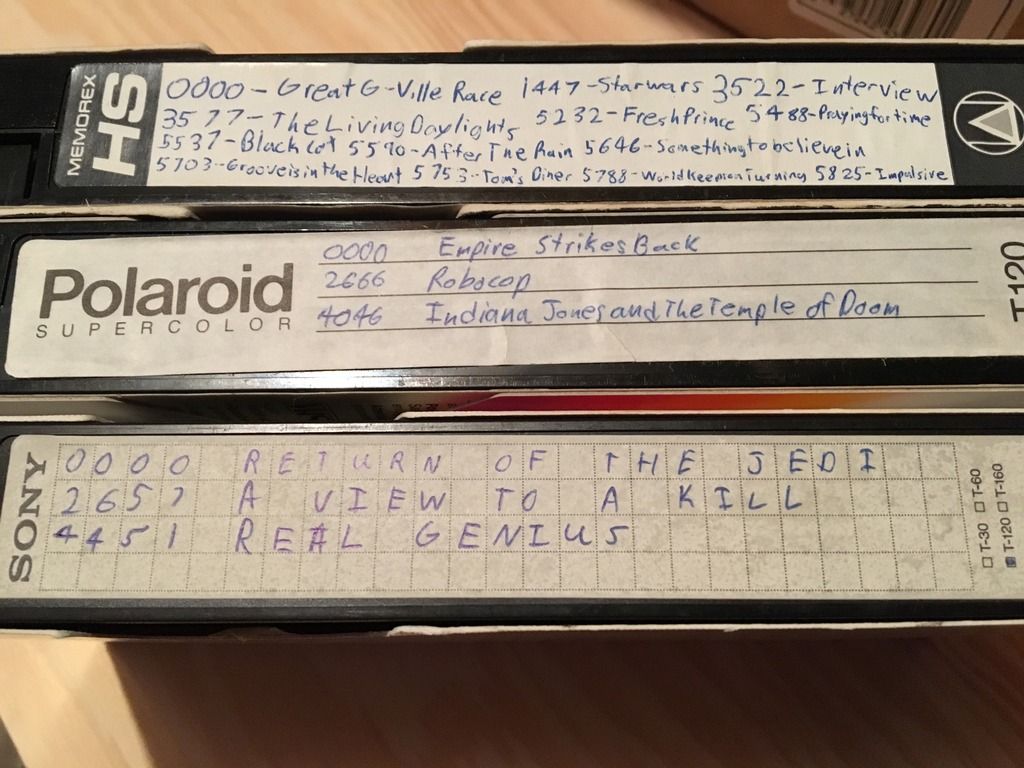 MEMOREX
HS
0000-Great G-Ville Race 1447-Starwars 3522-Interview
3577-The Living Daylights 5232-Fresh Prince 5488-Praying for time
5537-Black Cat 5590-After The Rain 5646-Something to believe in
5703-Groove is in the Heart 5753-Tom's Diner 5788-World Keep on Turning 5825-Impulsive
Polaroid
SUPERCOLOR
0000 Empire Strikes Back
2666 Robocop
4046 Indiana Jones and The Temple of Doom
T-120
SONY
0000 RETURN OF THE JEDI
2657 A VIEW TO A KILL
4451 REAL GENIUS
T-30 T-60
T-120 T-160